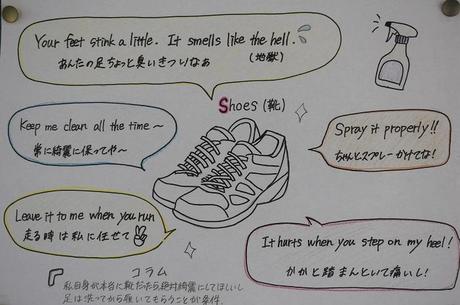 Your feet stink a little. It smells like the hell.
あんたの足ちょっと臭いきついなぁ (地獄)
Shoes (靴)
Keep me clean all the time〜
常に綺麗に保ってや〜
Spray it properly!!
ちゃんとスプレーかけてな!
Leave it to me when you run
走る時は私に任せて
It hurts when you step on my heel!
かかと踏まんといて痛いし!
コラム
私自身が本当に靴だったら絶対綺麗にしてほしいし
足は洗ってから履いてもらうことが条件。